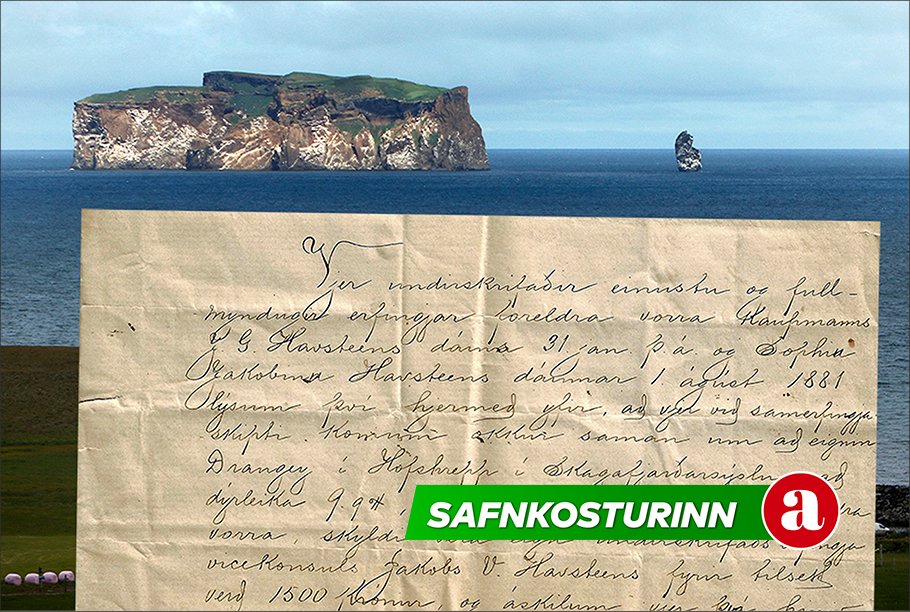 Vjer undirskrifaðir einustu og full-
myndugir erfingjar foreldra vorra Kaupmanns
J. G. Havsteens dáinn 31 jan. þ. á. og Sophiu
Jakobinu Havsteens dáinnar 1. ágúst 1881
lýsum því hjermeð yfir, að vjer við samerfingja
skipti komum okkur saman um að eignin
Drangey í Hofshrepp í Skagafjarðarsýslu að
dýrleika 9.9
vorra, skyldi undirskrifaðs
vicekonsuls Jakobs V. Havsteens fyrir tilsett
verð 1500 krónur, og áskilum vjer því
SAFNKOSTURINN a